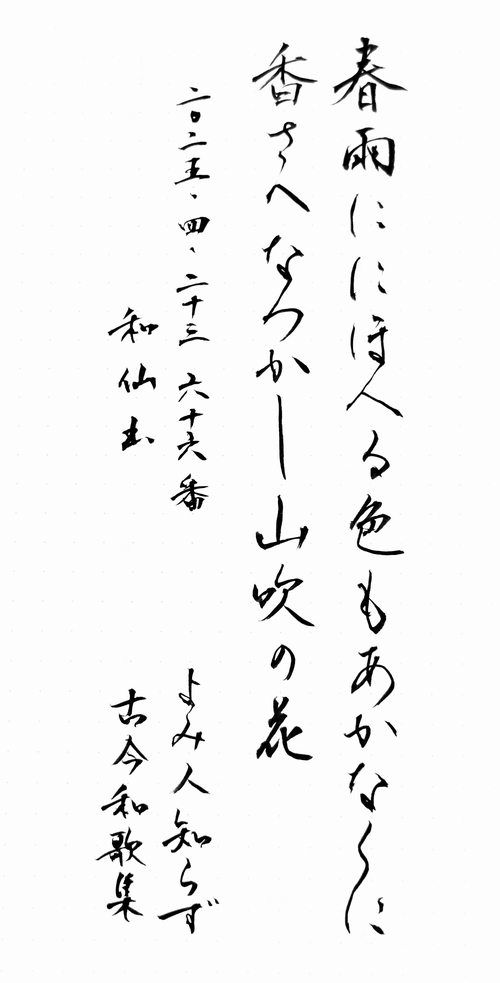 春雨ににほへる色もあかなくに
香さへなつかし山吹の花
二〇二五、四、二十三 六十六番
よみ人知らず
和仙書
古今和歌集